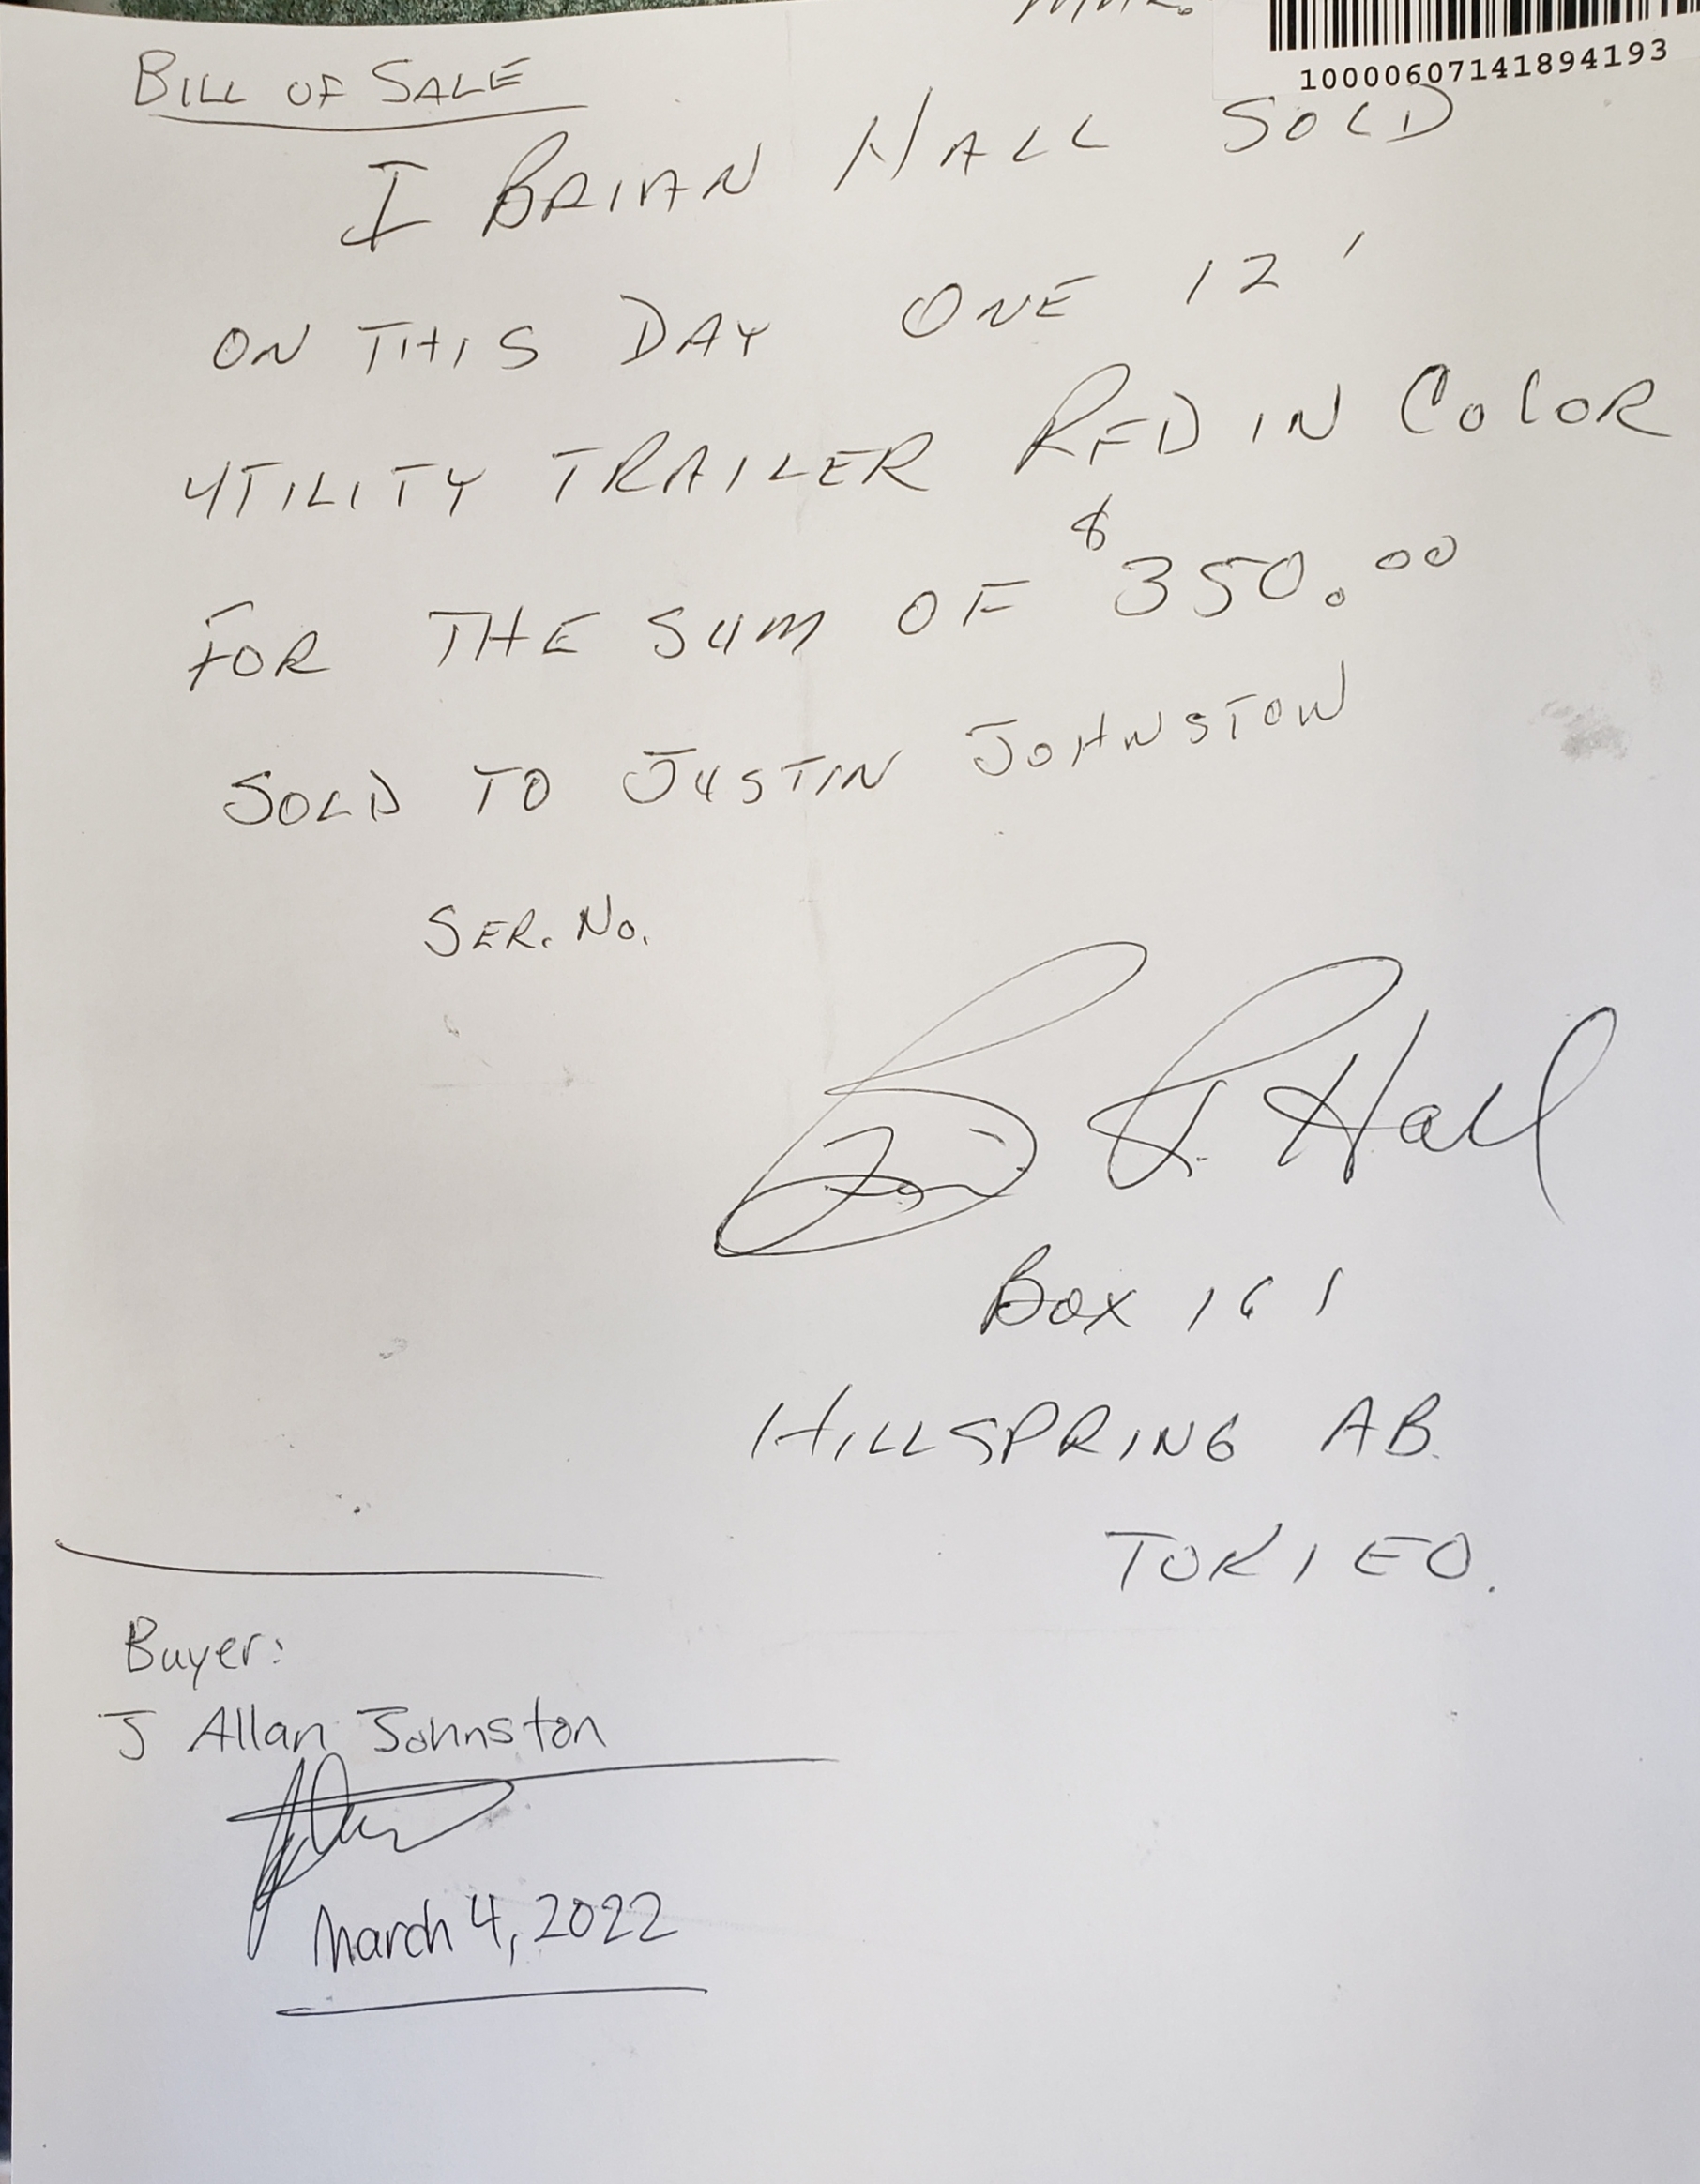 10000607141894193
BILL OF SALE
I BRIAN HALL SOLD
ON THIS DAY ONE 12'
UTILITY TRAILER RED IN COLOR
FOR THE SUM OF $350.00
SOLD TO JUSTIN JOHNSTON
SER. NO.
Hall
BOX 161
HILLSPRING AB.
TOK 1EO.
Buyer:
J Allan Johnston
March 4, 2022